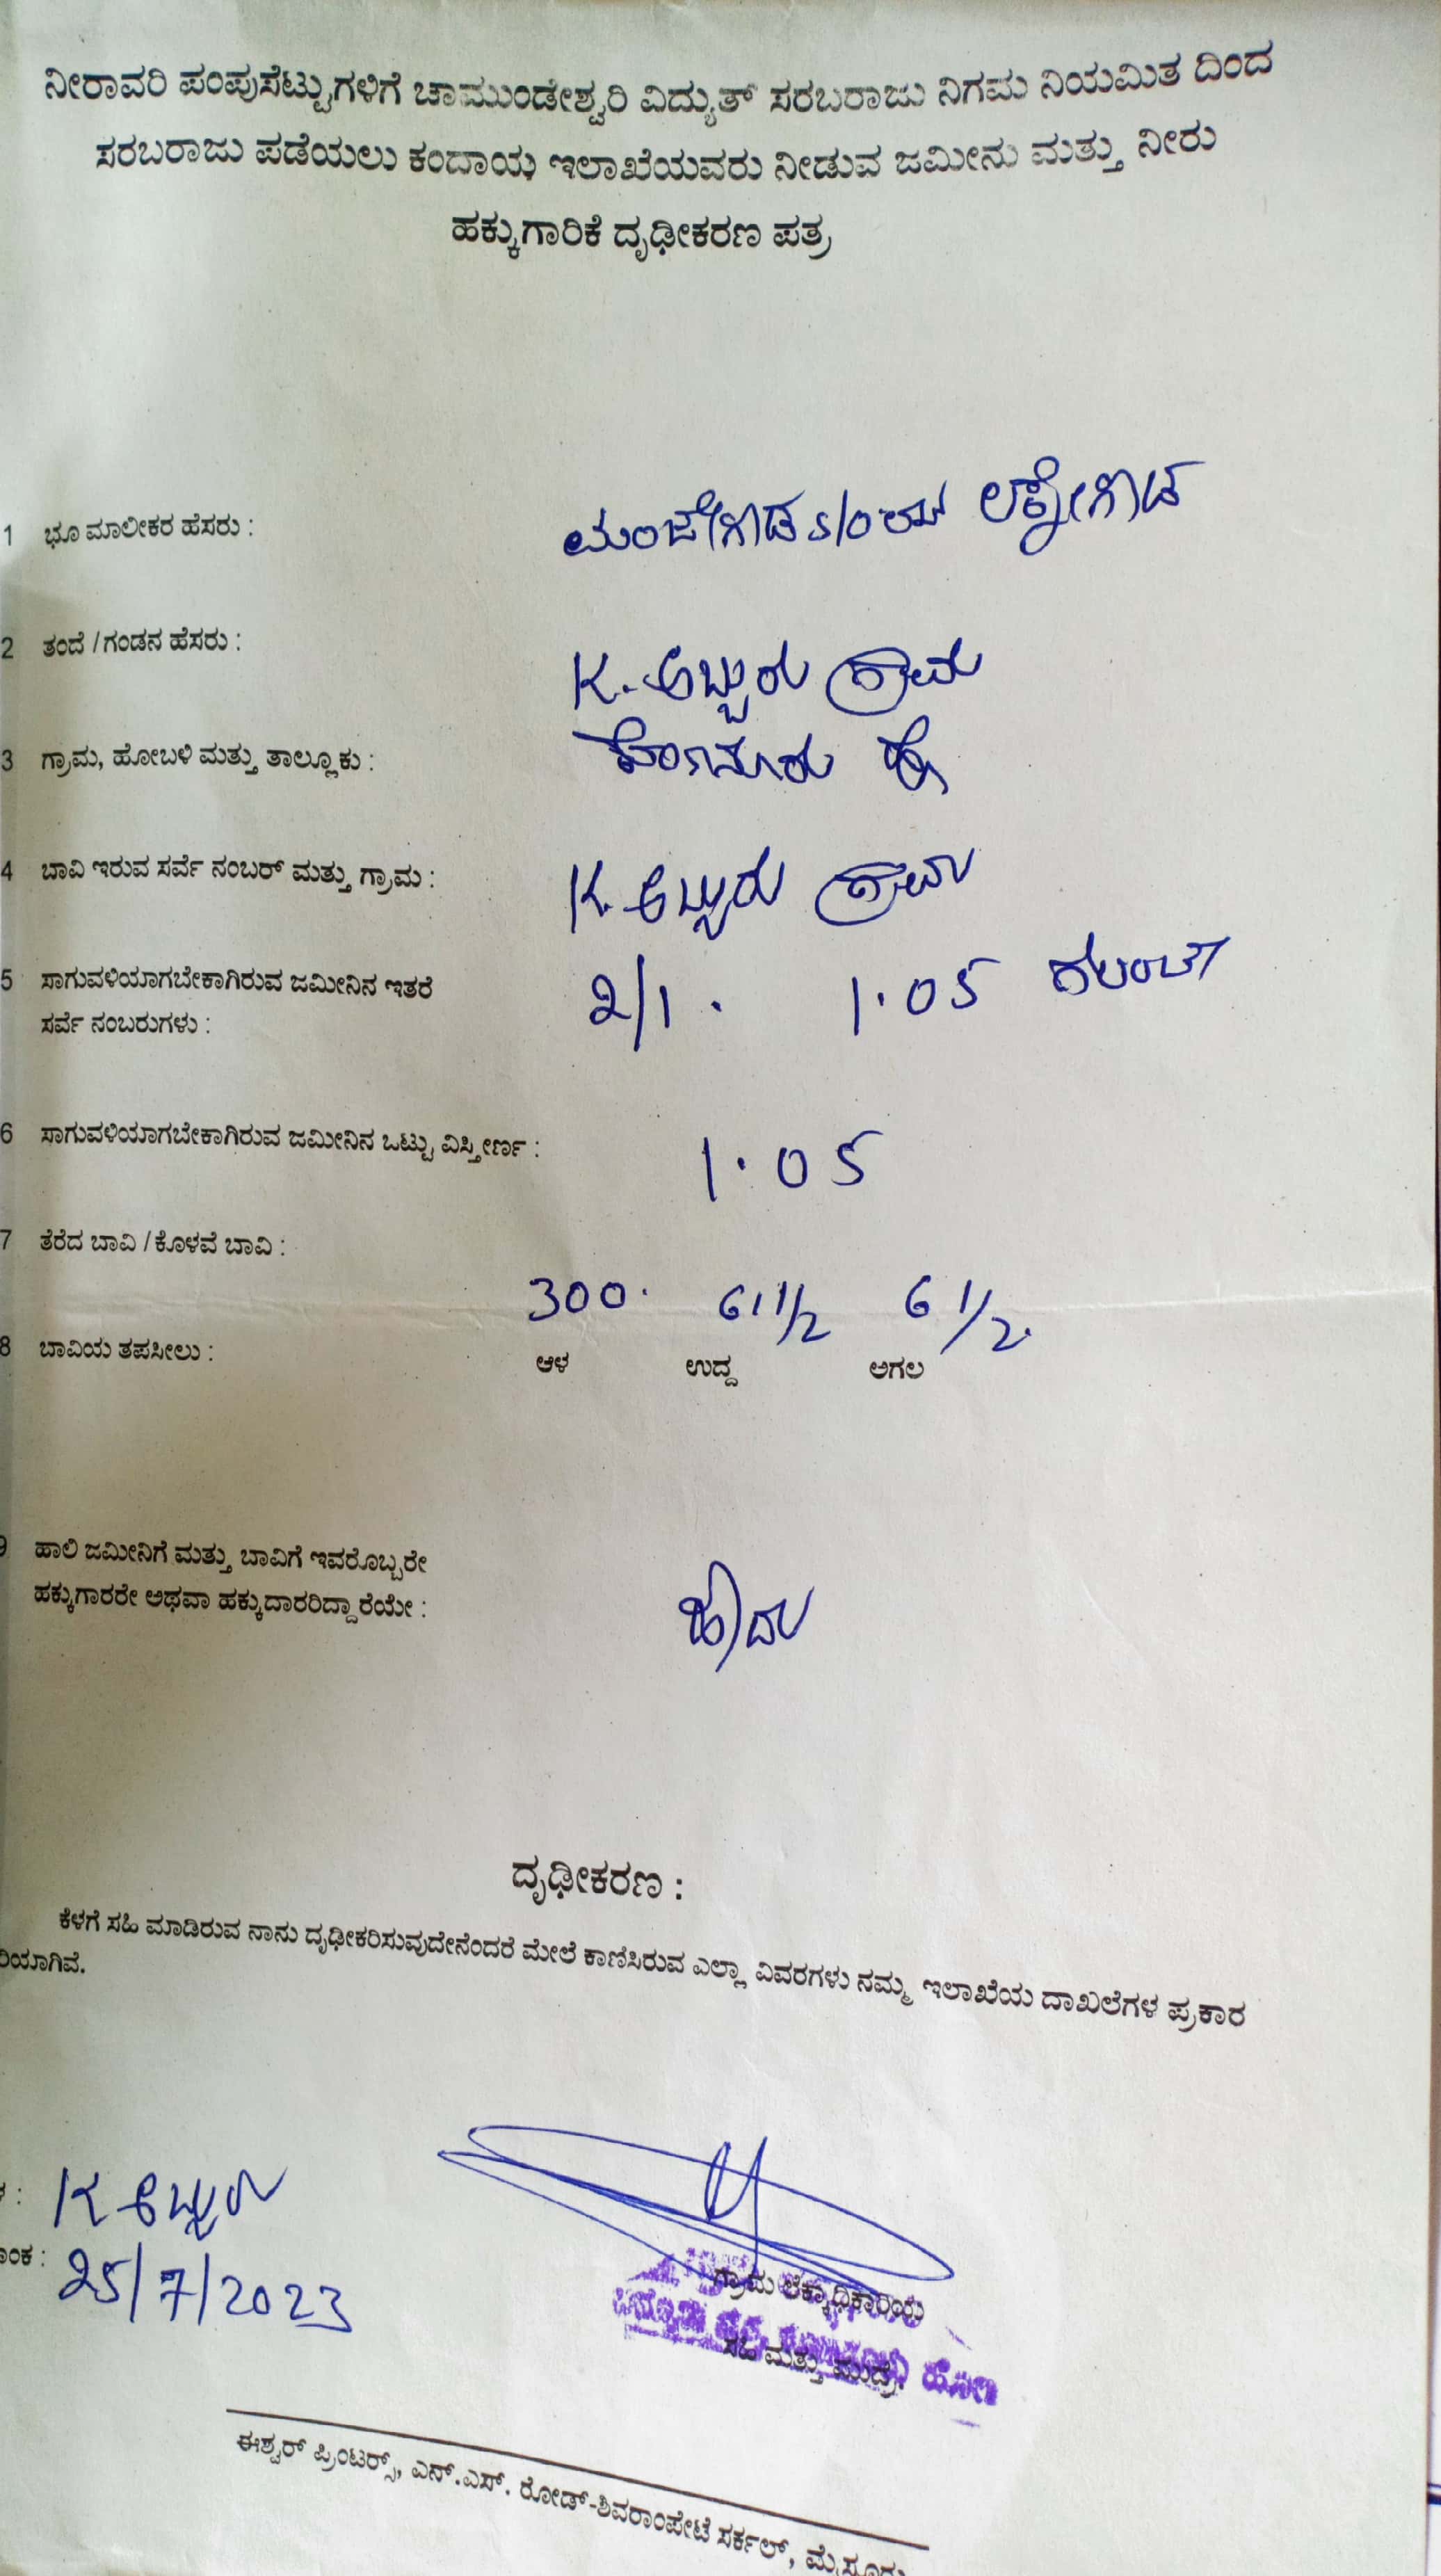 ನೀರಾವರಿ ಪಂಪುಸೆಟ್ಟುಗಳಿಗೆ ಚಾಮುಂಡೇಶ್ವರಿ ವಿದ್ಯುತ್ ಸರಬರಾಜು ನಿಗಮ ನಿಯಮಿತ ದಿಂದ
ಸರಬರಾಜು ಪಡೆಯಲು ಕಂದಾಯ ಇಲಾಖೆಯವರು ನೀಡುವ ಜಮೀನು ಮತ್ತು ನೀರು
ಹಕ್ಕುಗಾರಿಕೆ ದೃಢೀಕರಣ ಪತ್ರ
1 ಭೂ ಮಾಲೀಕರ ಹೆಸರು : ಮಂಜೇಗೌಡ s/o
2 ತಂದೆ / ಗಂಡನ ಹೆಸರು : K. ಅಬ್ಬುರು ಗ್ರಾಮ
3 ಗ್ರಾಮ, ಹೋಬಳಿ ಮತ್ತು ತಾಲ್ಲೂಕು :
4 ಬಾವಿ ಇರುವ ಸರ್ವೆ ನಂಬರ್ ಮತ್ತು ಗ್ರಾಮ : K. ಅಬ್ಬುರು ಗ್ರಾಮ
5 ಸಾಗುವಳಿಯಾಗಬೇಕಾಗಿರುವ ಜಮೀನಿನ ಇತರೆ 2/1 . 1.05
ಸರ್ವೆ ನಂಬರುಗಳು :
6 ಸಾಗುವಳಿಯಾಗಬೇಕಾಗಿರುವ ಜಮೀನಿನ ಒಟ್ಟು ವಿಸ್ತೀರ್ಣ : 1.05
7 ತೆರೆದ ಬಾವಿ / ಕೊಳವೆ ಬಾವಿ :
300. 61 1/2 6 1/2.
8 ಬಾವಿಯ ತಪಸೀಲು : ಆಳ ಉದ್ದ ಅಗಲ
9 ಹಾಲಿ ಜಮೀನಿಗೆ ಮತ್ತು ಬಾವಿಗೆ ಇವರೊಬ್ಬರೇ
ಹಕ್ಕುಗಾರರೇ ಅಥವಾ ಹಕ್ಕುದಾರರಿದ್ದಾರೆಯೇ : ಹೌದು
ದೃಢೀಕರಣ :
ಕೆಳಗೆ ಸಹಿ ಮಾಡಿರುವ ನಾನು ದೃಢೀಕರಿಸುವುದೇನೆಂದರೆ ಮೇಲೆ ಕಾಣಿಸಿರುವ ಎಲ್ಲಾ ವಿವರಗಳು ನಮ್ಮ ಇಲಾಖೆಯ ದಾಖಲೆಗಳ ಪ್ರಕಾರ
ರಿಯಾಗಿವೆ.
K ಅಬ್ಬುರು
ಾಂಕ : 25/7/2023
ಗ್ರಾಮ ಲೆಕ್ಕಾಧಿಕಾರಿಯ
ಸಹಿ ಮತ್ತು ಮುದ್ರೆ.
ಈಶ್ವರ್ ಪ್ರಿಂಟರ್ಸ್, ಎನ್.ಎಸ್. ರೋಡ್-ಶಿವರಾಂಪೇಟೆ ಸರ್ಕಲ್, ಮೈಸೂರು